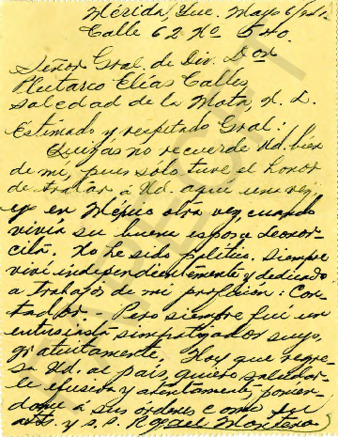 Mérida, Yuc. Mayo 6/941.
Calle 62 No 540.
Señor Gral. de Div. Don
Plutarco Elías Calles
Soledad de la Mota, N. L.
Estimado y respetado Gral:
Quizas no recuerde Ud. bien
de mi, pues sólo tuve el honor
de tratar á Ud. aquí una vez
y en México otra vez, cuando
vivía su buena esposa Leonor-
cita. No he sido político. Siempre
viví independientemente y dedicado
a trabajos de mi profesión: Con-
tador. Pero siempre fui un
entusiasta simpatizador suyo,
gratuitamente. Hoy que regre-
sa Ud. al país, quiero saludar-
le efusiva y atentamente, ponien-
dome a sus ordenes como su
atto. y s. s. Rafael